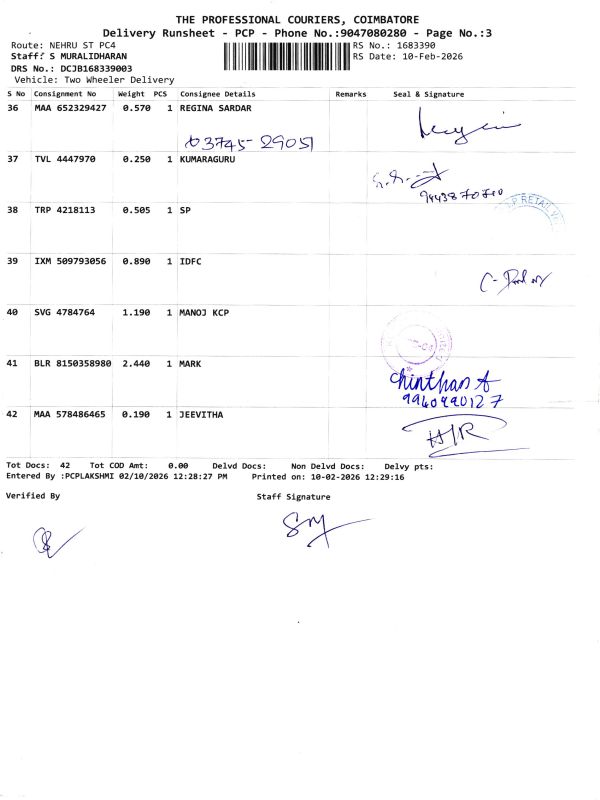 THE PROFESSIONAL COURIERS, COIMBATORE
Delivery Runsheet - PCP - Phone No.:9047080280 - Page No.:3
Route: NEHRU ST PC4 RS No.: 1683390
Staff: S MURALIDHARAN RS Date: 10-Feb-2026
DRS No.: DCJB168339003
Vehicle: Two Wheeler Delivery
S No Consignment No Weight PCS Consignee Details Remarks Seal & Signature
36 MAA 652329427 0.570 1 REGINA SARDAR
03745-29051
37 TVL 4447970 0.250 1 KUMARAGURU
38 TRP 4218113 0.505 1 SP
RETAIL
39 IXM 509793056 0.890 1 IDFC
40 SVG 4784764 1.190 1 MANOJ KCP
41 BLR 8150358980 2.440 1 MARK
Chinthan A
9940490127
42 MAA 578486465 0.190 1 JEEVITHA
Tot Docs: 42 Tot COD Amt: 0.00 Delvd Docs: Non Delvd Docs: Delvy pts:
Entered By :PCPLAKSHMI 02/10/2026 12:28:27 PM Printed on: 10-02-2026 12:29:16
Verified By Staff Signature